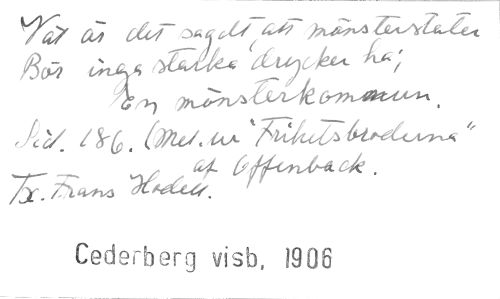 Nät är det sagdt, att mönsterstater
Bör inga starka drycker ha;
En mönsterkommun.
Sid. 186. (Mel. ur "Frihetsbröderna"
af Offenback.
Tx. Frans Hodell.
Cederberg visb, 1906